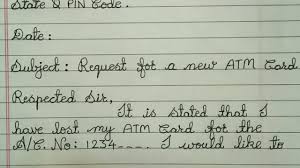 State & PIN Code.
Date:
Subject: Request for a new ATM Card
Respected Sir,
It is stated that I
have lost my ATM Card for the
A/C. No: 1234.... I would like to